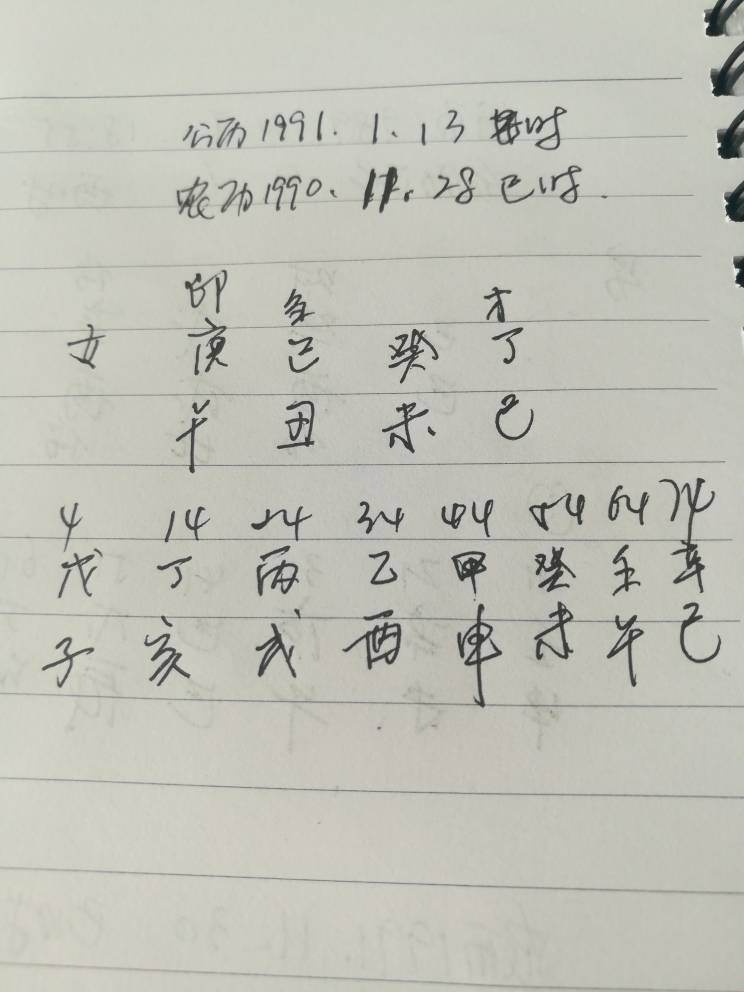 公历1991.1.13 时
农历1990.11.28巳时.
印 杀 才
女 庚 己 癸 丁
午 丑 未 巳
4 14 24 34 44 54 64 74
戊 丁 丙 乙 甲 癸 壬 辛
子 亥 戌 酉 申 未 午 巳